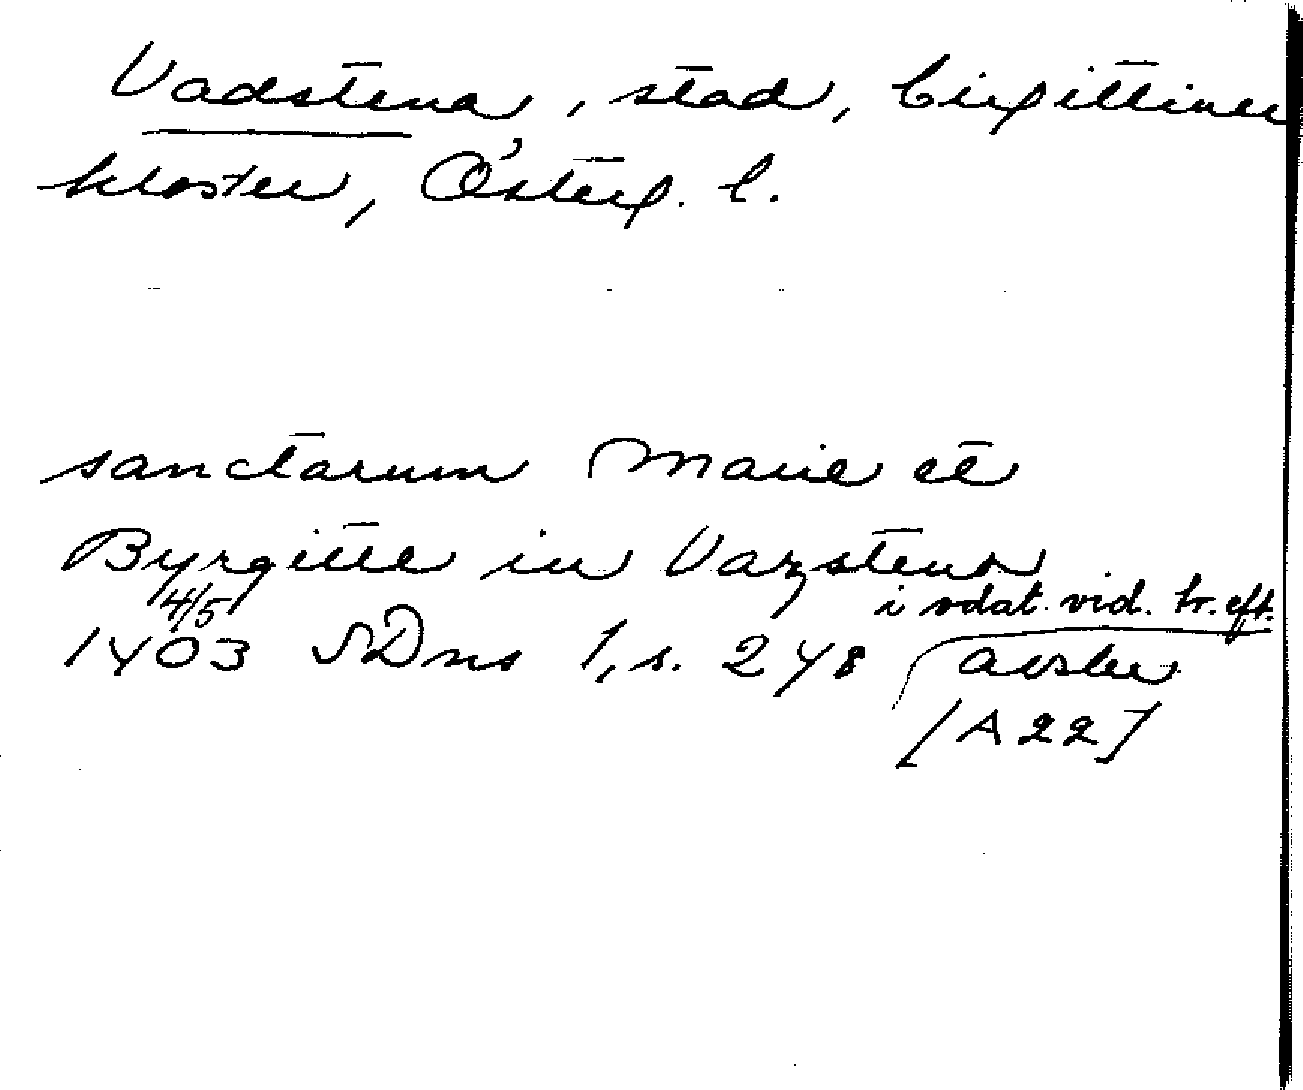 Vadstena, stad, birgittiner
kloster, Österg. l.
sanctarum Marie et
Byrgitte in Vazstena
1403 4/5 SDns 1, s. 248 i odat. vid. tr. eft.
avskr
[A 22]